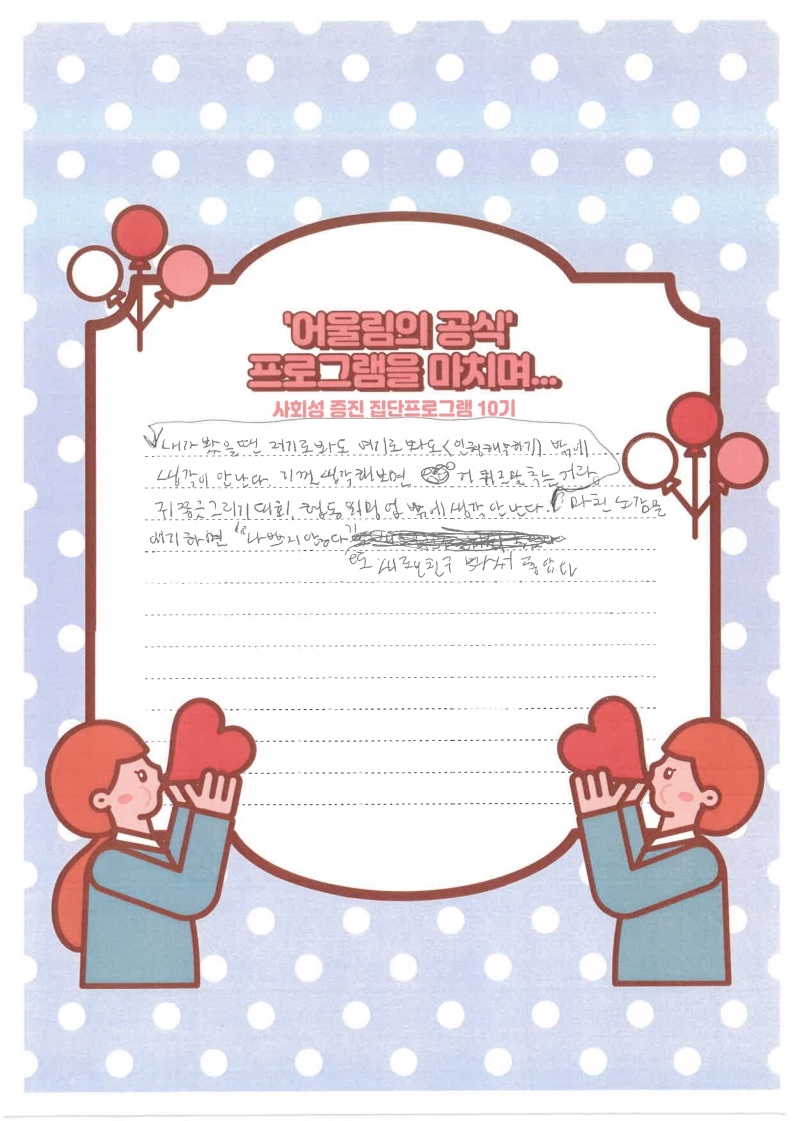 '어울림의 공식'
프로그램을 마치며...
사회성 증진 집단프로그램 10기
내가 봤을땐 저기로봐도 여기로봐도<인형 >밖에
생각이 안난다. 기껏 생각해보면 거 퀴즈맞추는거랑
그리기 대회, 협동 밖에 생각 안난다. 마친 느낌을
얘기하면 "나쁘지 않았다"
또 새로운친구 봐서 좋았다